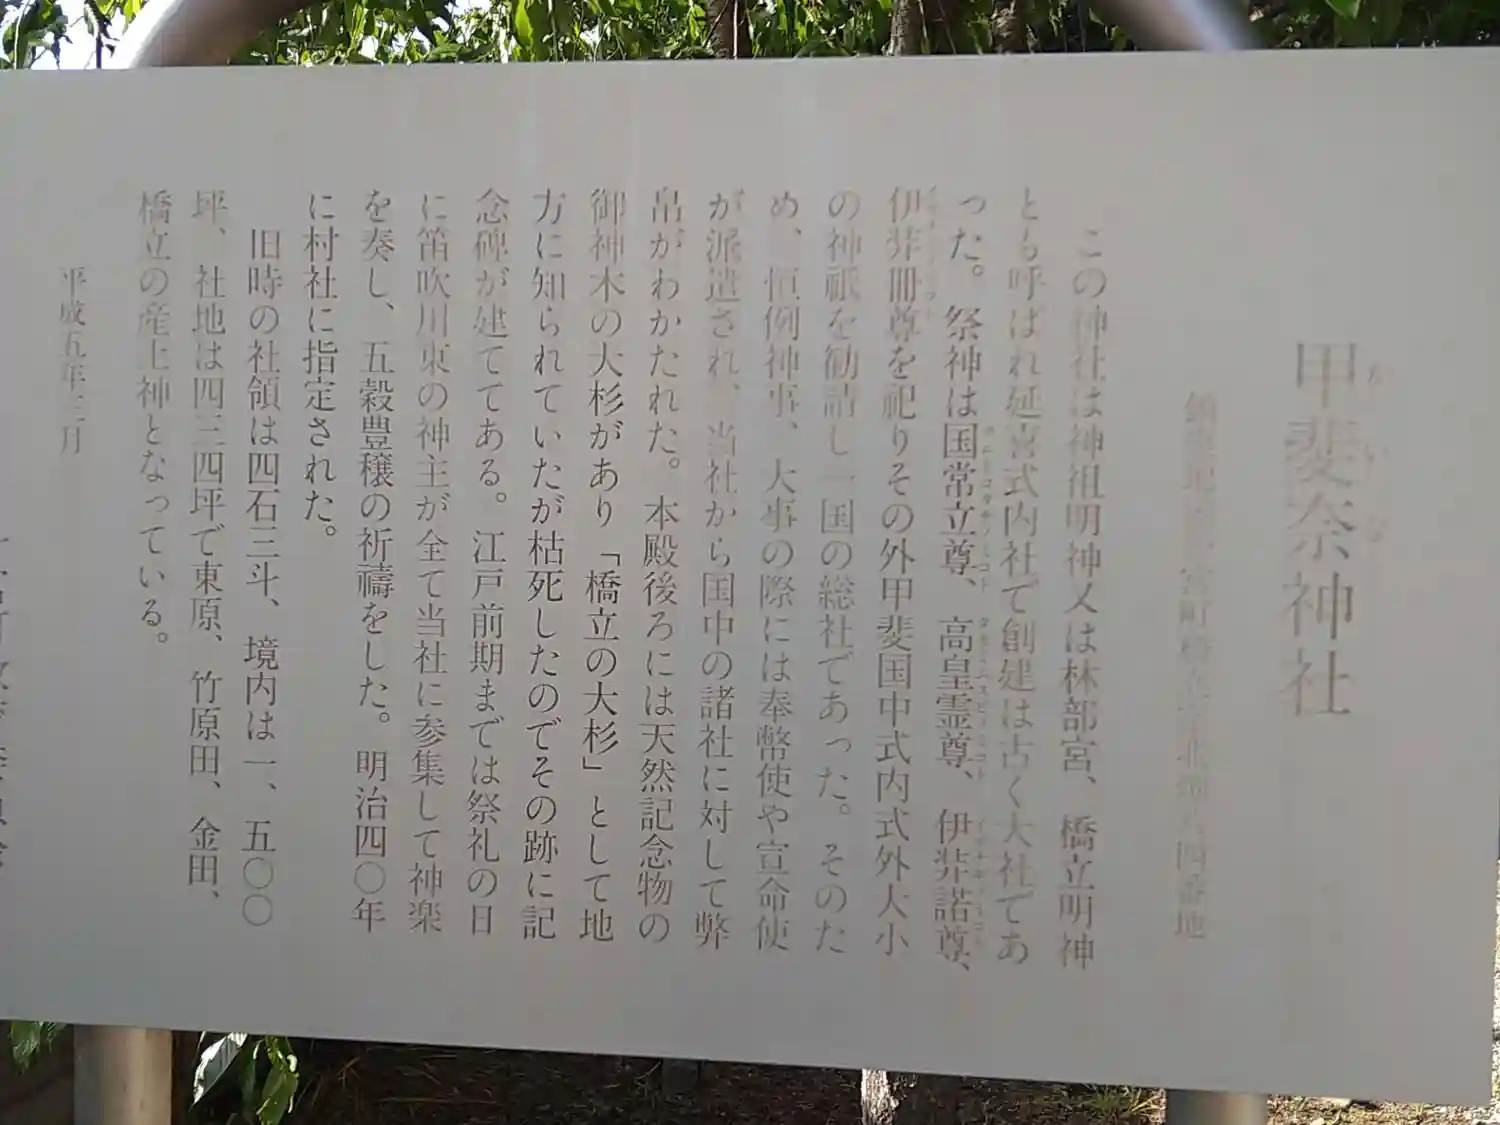 甲斐奈神社
かいな
宮町橋立字北畑八四番地
この神社は神祖明神又は林部宮、橋立明神
とも呼ばれ延喜式内社で創建は古く大社であ
った。祭神は国常立尊、高皇霊尊、伊弉諾尊、
伊弉冊尊を祀りその外甲斐国中式内式外大小
の神祇を勧請し一国の総社であった。そのた
め、恒例神事、大事の際には奉幣使や宣命使
が派遣され、当社から国中の諸社に対して弊
帛がわかたれた。本殿後ろには天然記念物の
御神木の大杉があり「橋立の大杉」として地
方に知られていたが枯死したのでその跡に記
念碑が建ててある。江戸前期までは祭礼の日
に笛吹川東の神主が全て当社に参集して神楽
を奏し、五穀豊穣の祈禱をした。明治四〇年
に村社に指定された。
旧時の社領は四石三斗、境内は一、五〇〇
坪、社地は四三四坪で東原、竹原田、金田、
橋立の産土神となっている。
平成五年三月